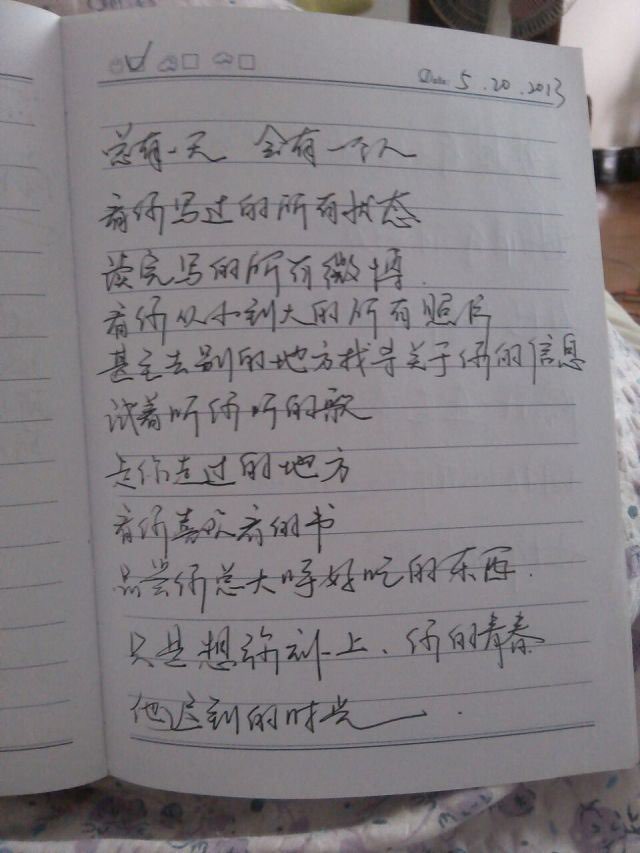 Date: 5.20.2013
总有一天 会有一个人
看你写过的所有状态
读完写的所有微博.
看你从小到大的所有照片
甚至去别的地方找寻关于你的信息
试着听你听的歌
走你走过的地方
看你喜欢看的书
品尝你总大呼好吃的东西.
只是想弥补上、你的青春
他迟到的时光——.